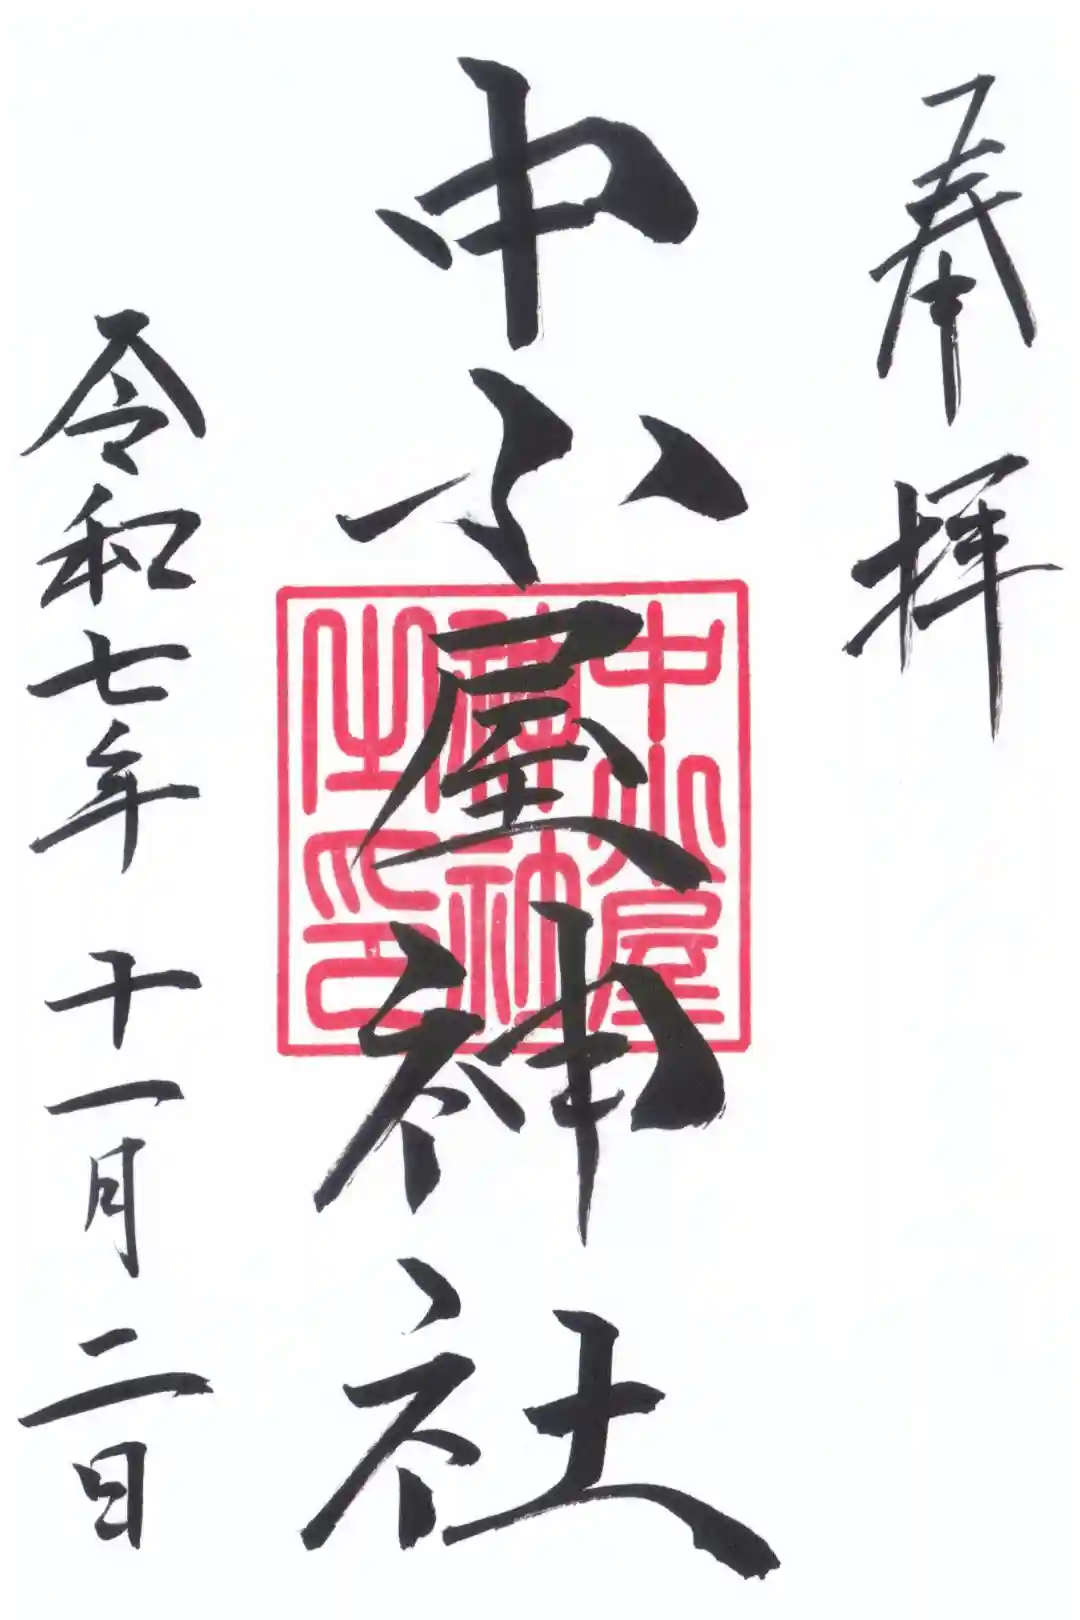 奉拝
中小屋神社
中小屋
神社
之印
令和七年 十一月 二日